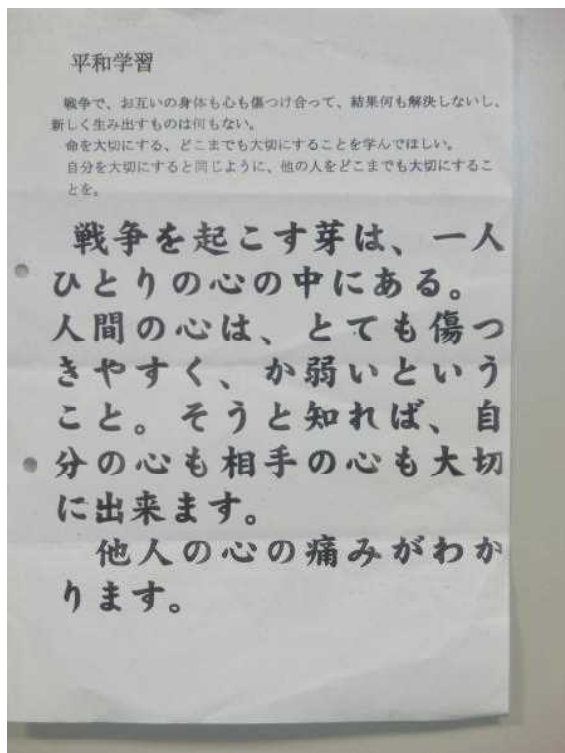 平和学習
戦争で、お互いの身体も心も傷つけ合って、結果何も解決しないし、
新しく生み出すものは何もない。
命を大切にする、どこまでも大切にすることを学んでほしい。
自分を大切にすると同じように、他の人をどこまでも大切にするこ
とを。
戦争を起こす芽は、一人
ひとりの心の中にある。
人間の心は、とても傷つ
きやすく、か弱いという
こと。そうと知れば、自
分の心も相手の心も大切
に出来ます。
他人の心の痛みがわか
ります。